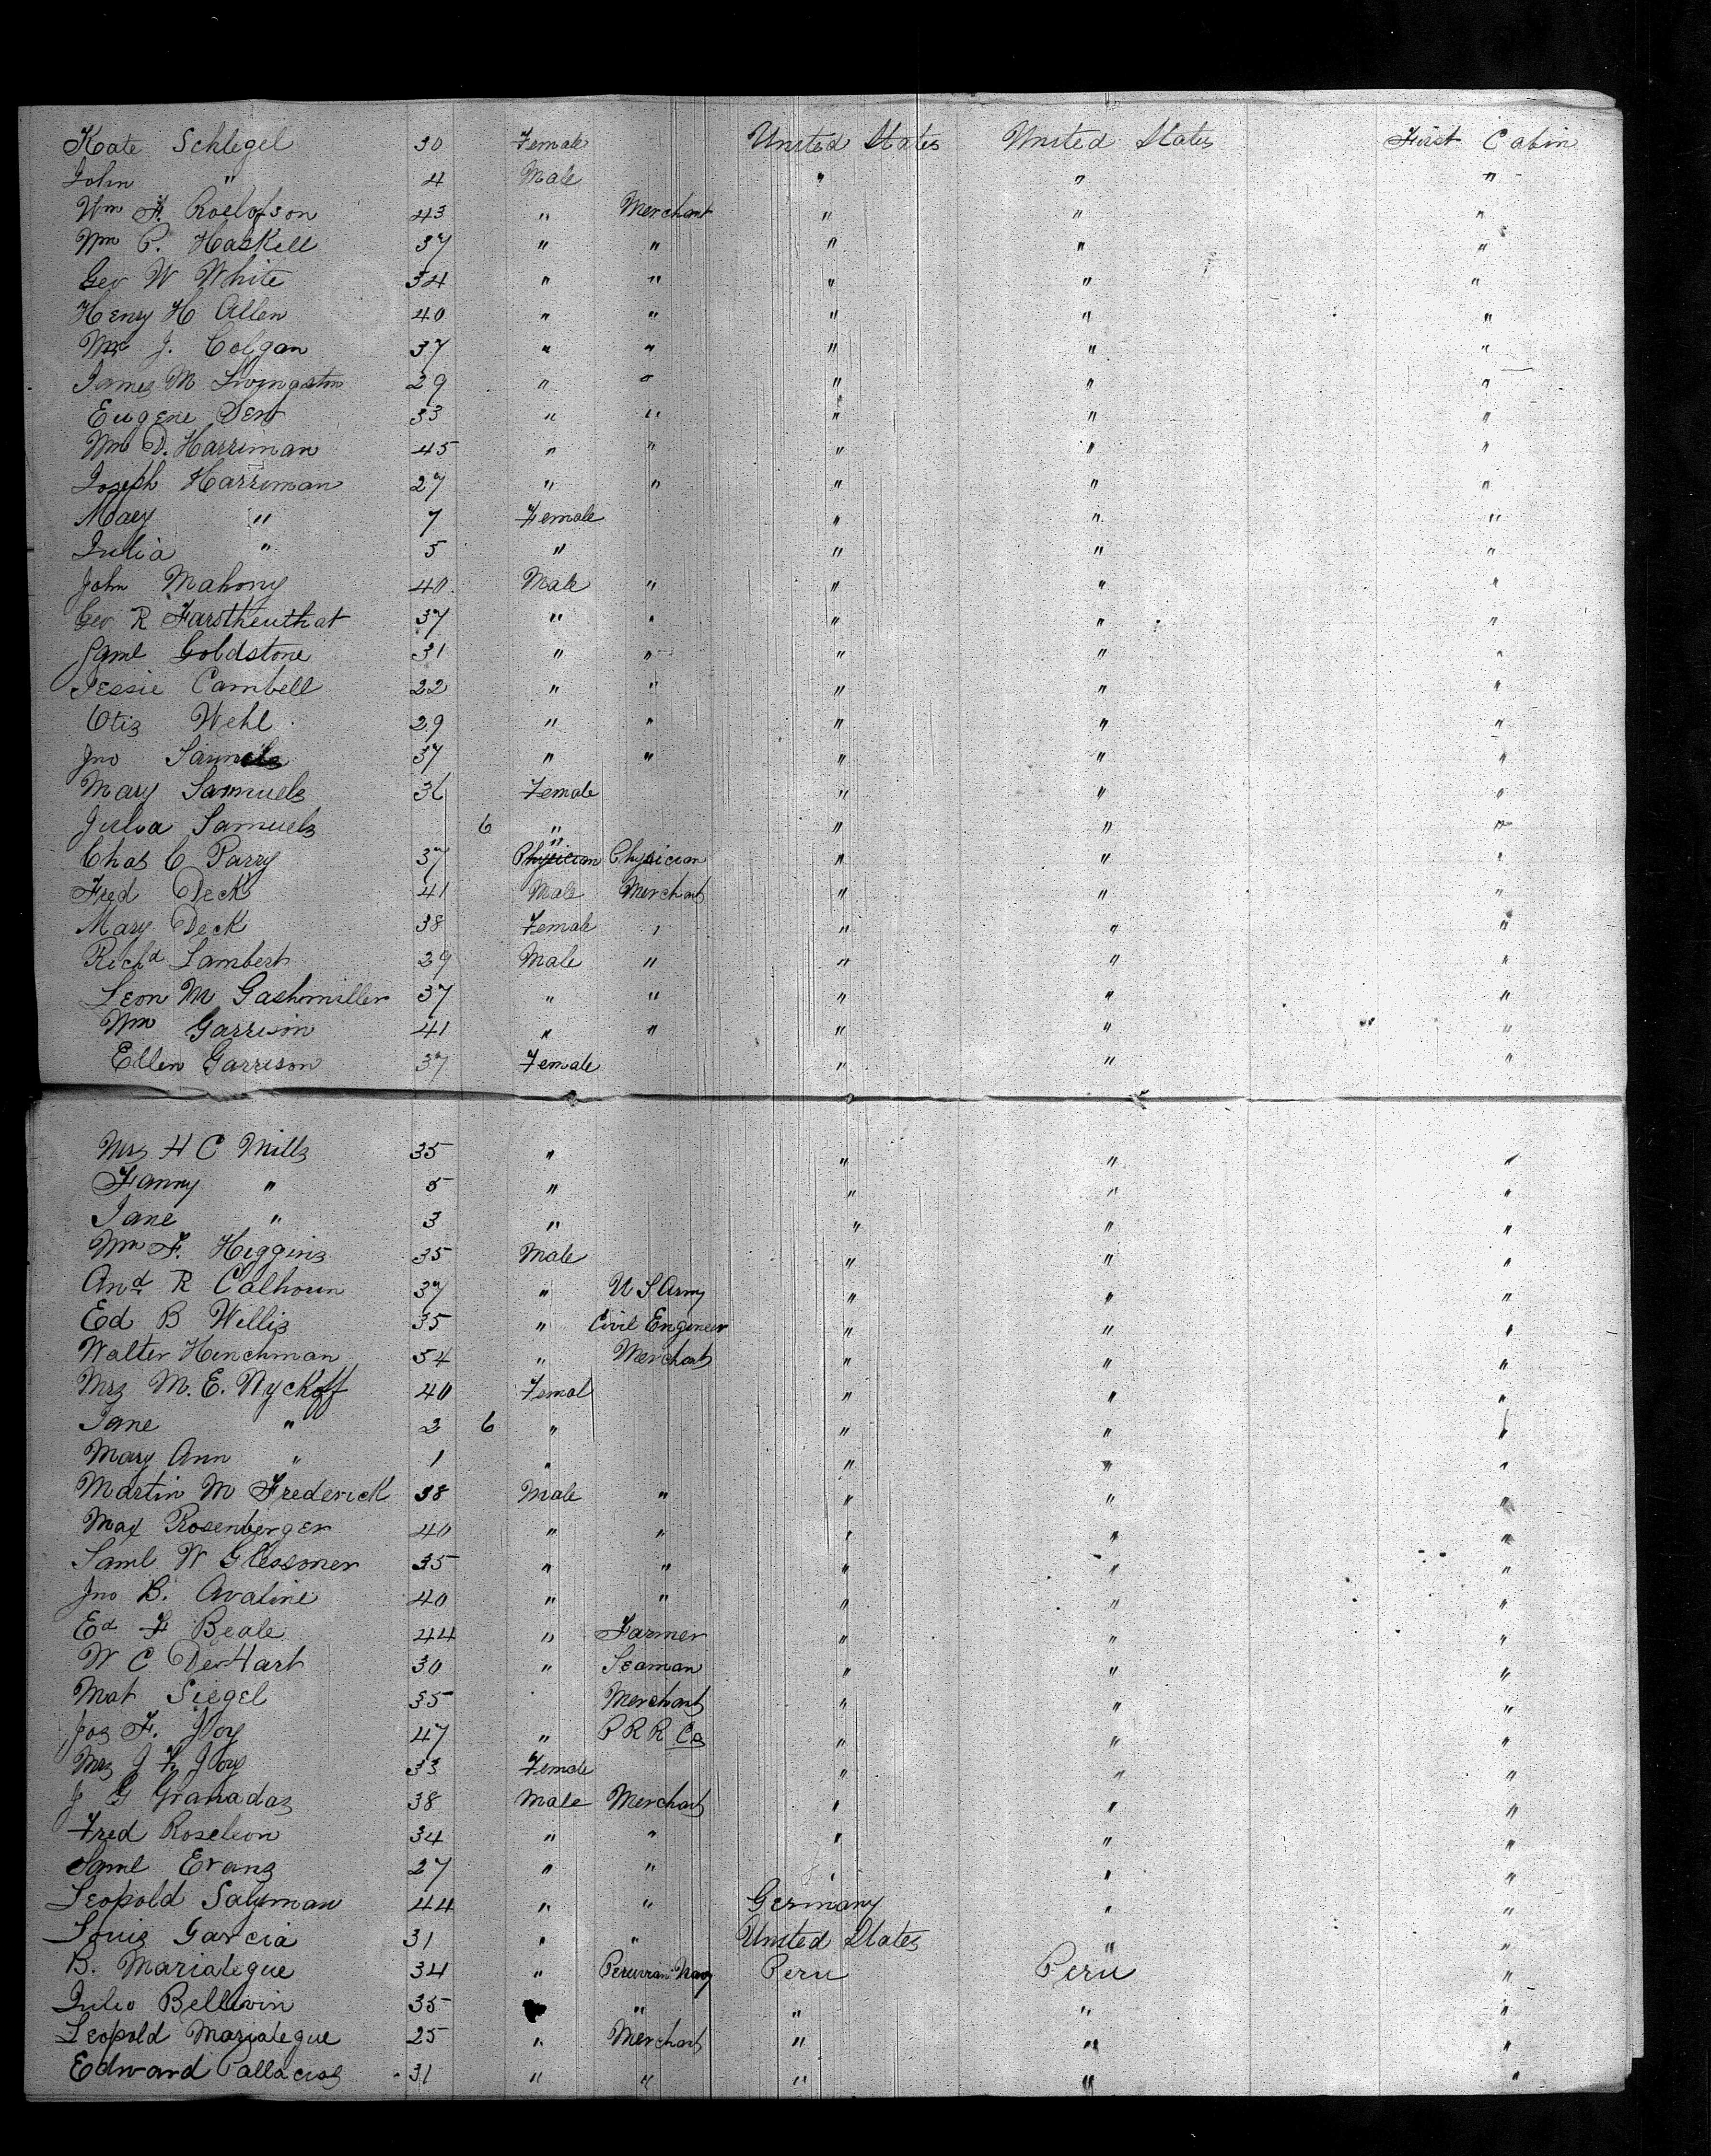 Kate Schlegel 30 Female United States United States First Cabin
John " 4 Male " " "
Wm F. Roelofson 43 " Merchant " " "
Wm P. Haskell 37 " " " " "
Geo W White 34 " " " " "
Henry H Allen 40 " " " " "
Wm J. Colgan 37 " " " " "
James M Livingston 29 " " " " "
Eugene Dew 33 " " " " "
Wm D. Harriman 45 " " " " "
Joseph Harriman 27 " " " " "
Mary " 7 Female " " "
Julia " 5 " " " "
John Mahony 40 Male " " " "
Geo R Farstheuthat 37 " " " " "
Saml Goldstone 31 " " " " "
Jessie Cambell 22 " " " " "
Otis Wehl 29 " " " " "
Jno Samuels 37 " " " " "
Mary Samuels 36 Female " " "
Julia Samuels 6 " " " "
Chas C Parry 37 " Physician Physician " " "
Fred Deck 41 Male Merchant " " "
Mary Deck 38 Female " " " "
Richd Lambert 29 Male " " " "
Leon M Gashmiller 37 " " " " "
Wm Garrison 41 " " " " "
Ellen Garrison 37 Female " " "
Mrs H C Mills 35 " " " "
Fanny " 5 " " " "
Jane " 3 " " " "
Wm F. Higgins 35 Male " " "
And R Calhoun 37 " U S Army " " "
Ed B Willis 35 " Civil Engineer " " "
Walter Hinchman 54 " Merchant " " "
Mrs M. E. Wyckoff 40 Femal " " "
Jane " 2 6 " " " "
Mary Ann " 1 " " " "
Martin M Frederick 38 Male " " " "
Max Rosenberger 40 " " " " "
Saml W Glessoner 35 " " " " "
Jno B. Avaline 40 " " " " "
Ed F Beale 44 " Farmer " " "
W C DeHart 30 " Seaman " " "
Mat Siegel 35 " Merchant " " "
Jos F. Joy 47 " P R R Co " " "
Mrs J F. Joy 33 Female " " "
J G Granados 38 Male Merchant " " "
Fred Roseleon 34 " " " " "
Saml Evans 27 " " " " "
Leopold Salyman 44 " " Germany " "
Louis Garcia 31 " " United States " "
B. Mariategue 34 " Peruvian Navy Peru Peru "
Julio Bellivin 35 " " " "
Leopold Mariategue 25 " Merchant " " "
Edward Pallacios 31 " " " " "